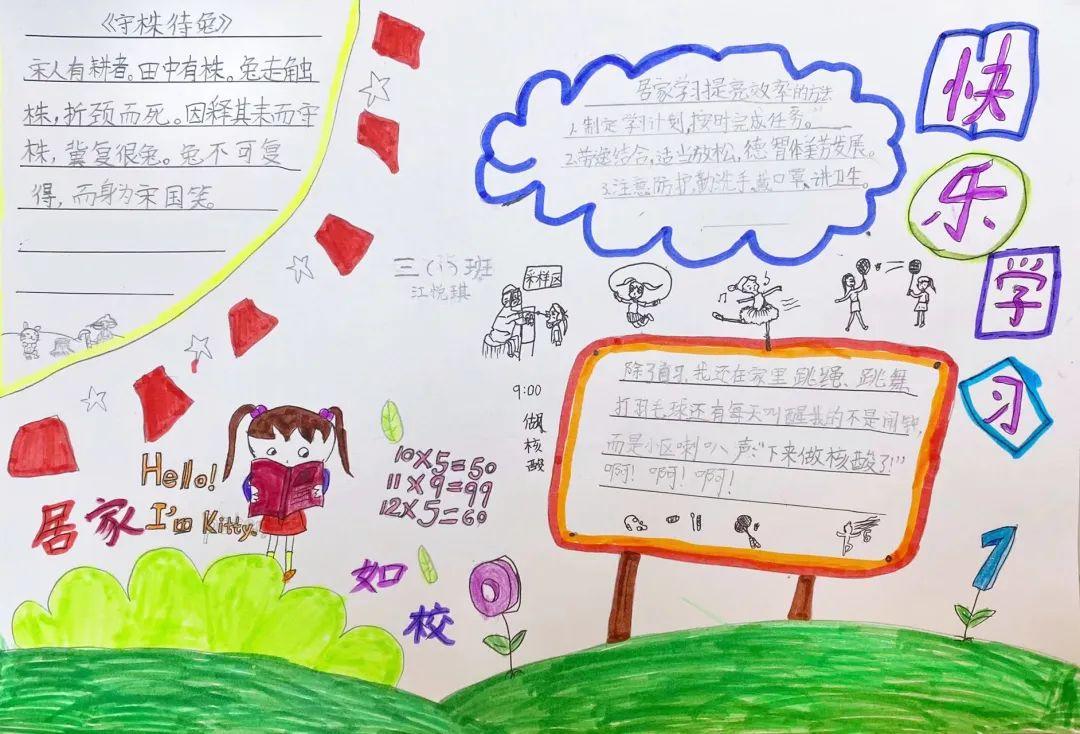 《守株待兔》
宋人有耕者。田中有株。兔走触
株，折颈而死。因释其耒而守
株，冀复很兔。兔不可复
得，而身为宋国笑。
居家学习提高效率的方法
1.制定学习计划，按时完成任务。
2.劳逸结合，适当放松，德智体美劳发展。
3.注意防护勤洗手、戴口罩、讲卫生。
快
乐
学
习
班
江悦琪
采样区
9:00
做
核
酸
除了自习，我还在家里跳绳、跳舞
打羽毛球还有每天叫醒我的不是闹钟，
而是小区喇叭声：“下来做核酸了！”
啊！啊！啊！
Hello!
I'm Kitty.
10×5=50
11×9=99
12×5=60
居家
如
校
0
1